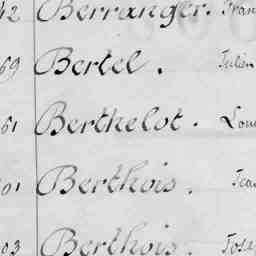 42 Berranger. Fran
69 Bertel. Julien
61 Berthelot. Loui
01 Berthois. Jea
03 Berthois. Jose